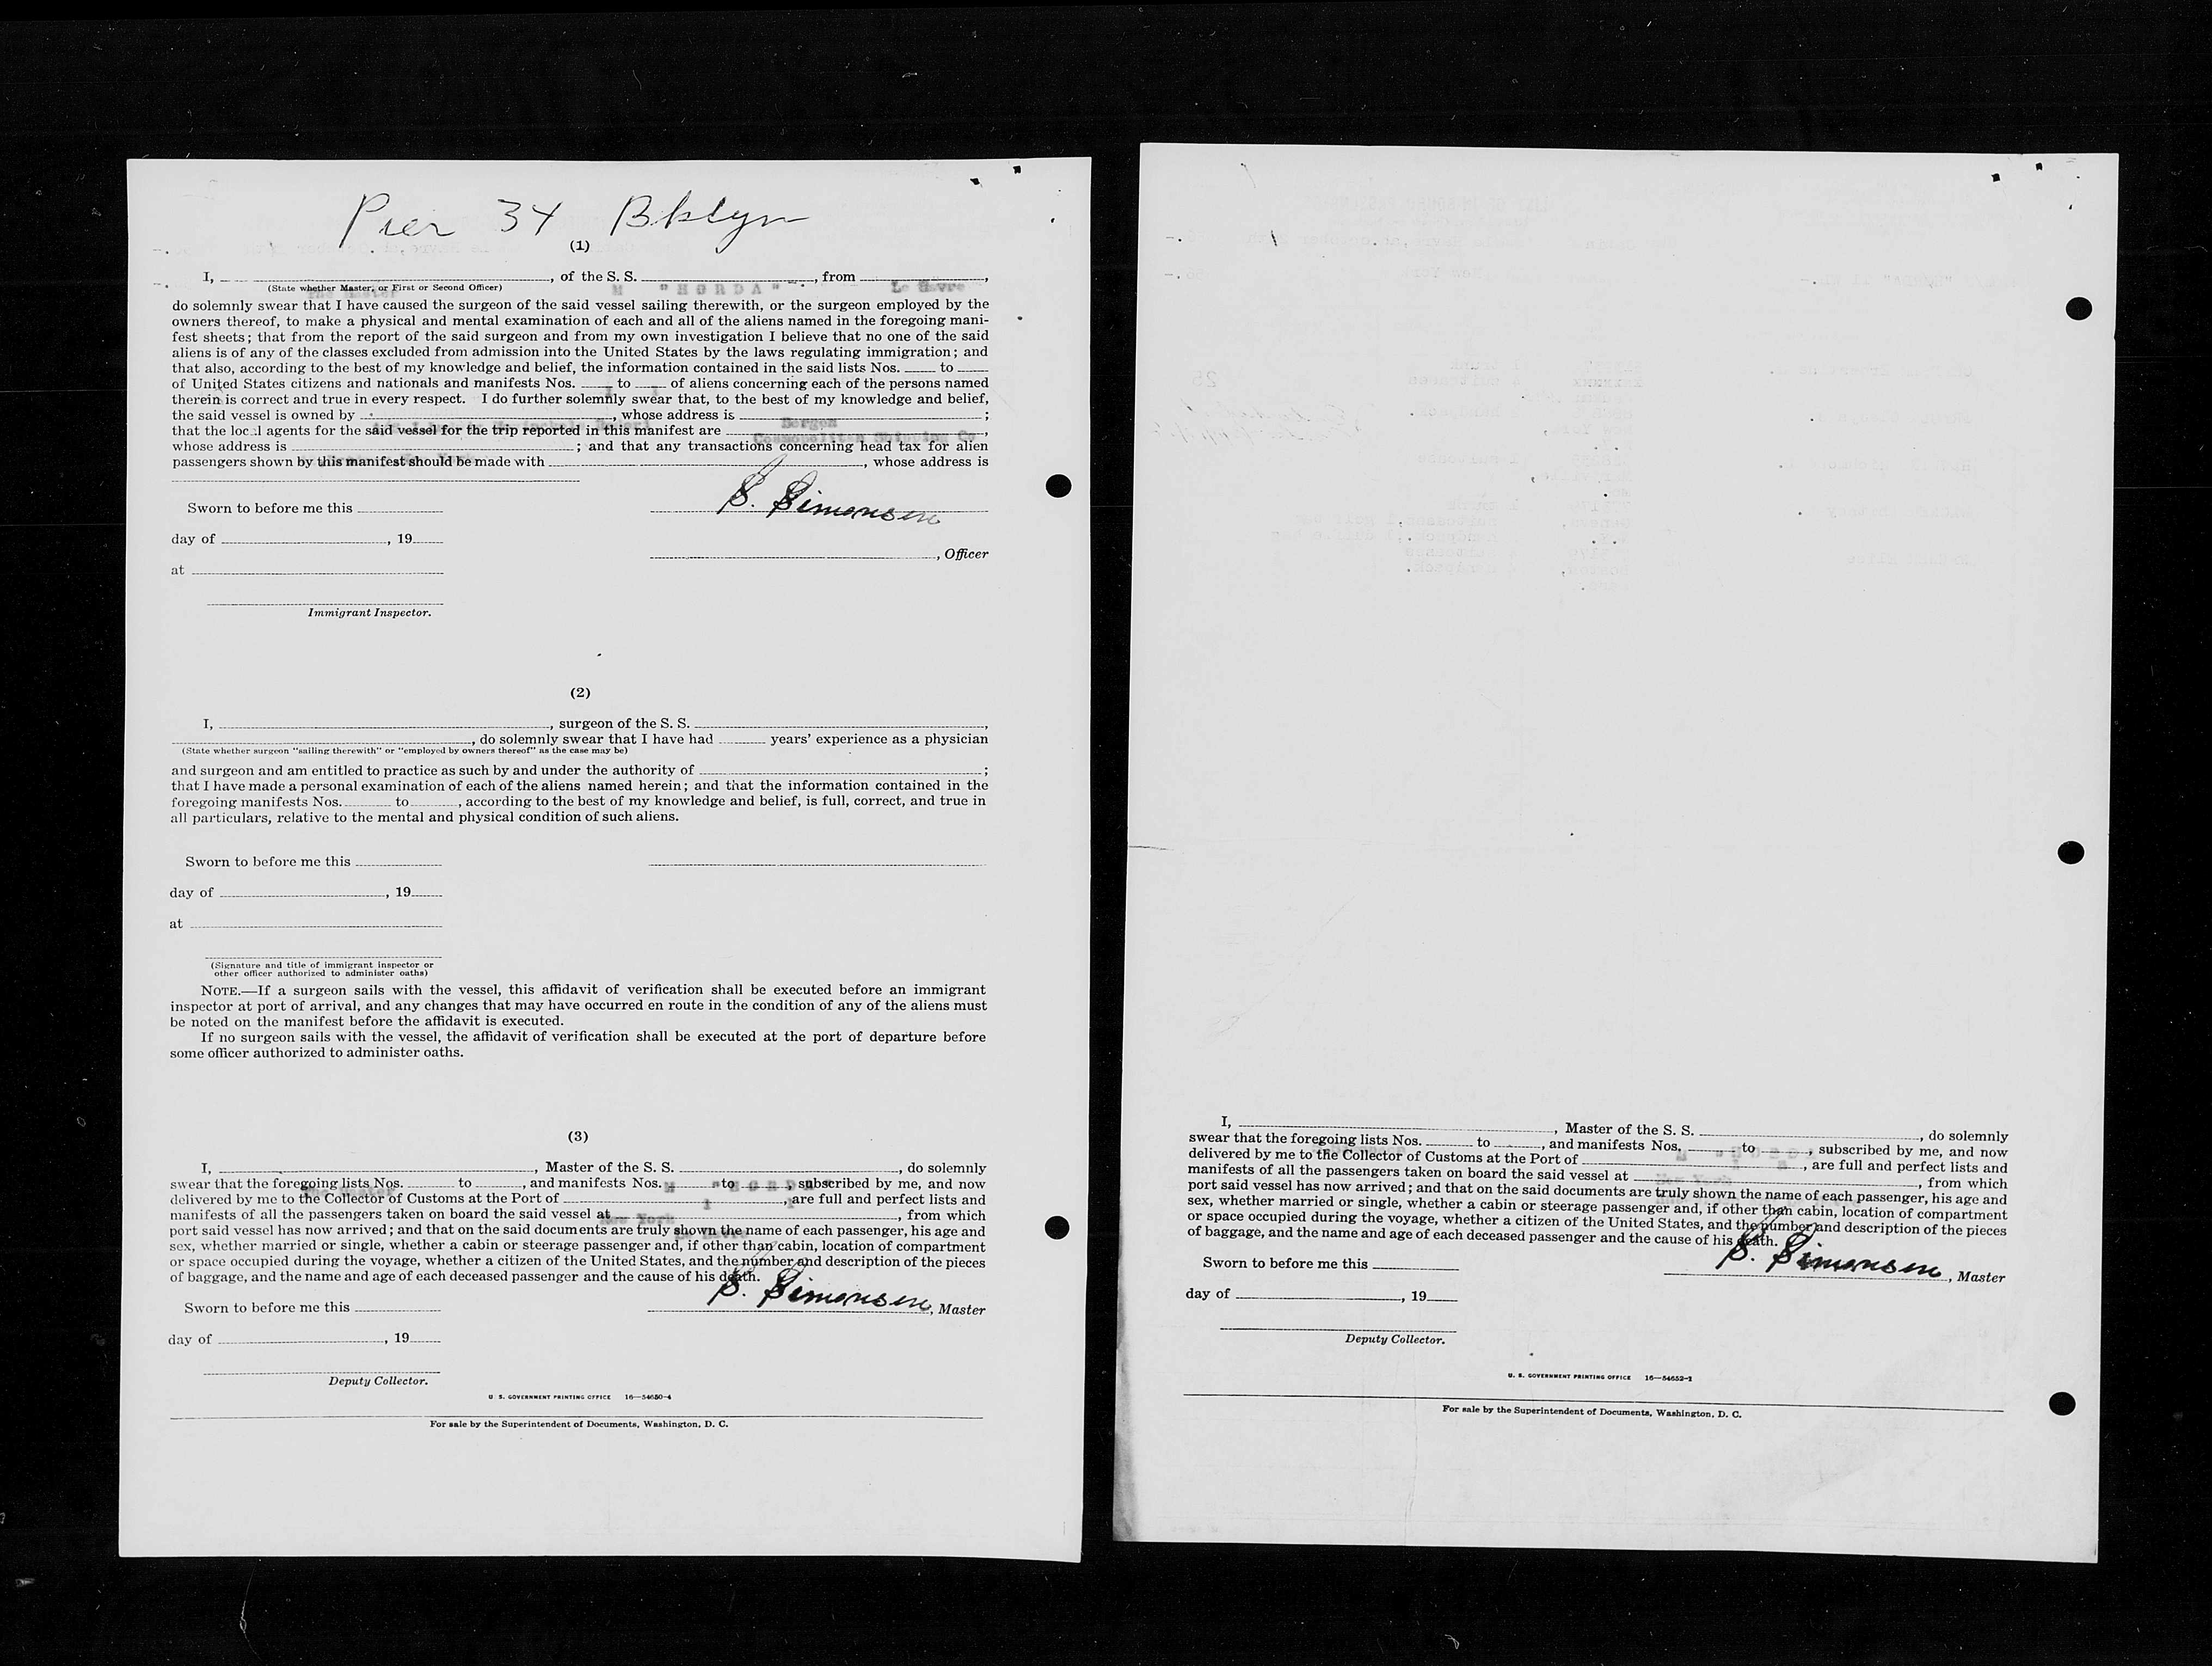 Pier 34 Bklyn
(1)
I, , of the S. S. , from ,
(State whether Master, or First or Second Officer)
The Master M "HORDA" Le Havre
do solemnly swear that I have caused the surgeon of the said vessel sailing therewith, or the surgeon employed by the
owners thereof, to make a physical and mental examination of each and all of the aliens named in the foregoing mani-
fest sheets; that from the report of the said surgeon and from my own investigation I believe that no one of the said
aliens is of any of the classes excluded from admission into the United States by the laws regulating immigration; and
that also, according to the best of my knowledge and belief, the information contained in the said lists Nos. to
of United States citizens and nationals and manifests Nos. to of aliens concerning each of the persons named
therein is correct and true in every respect. I do further solemnly swear that, to the best of my knowledge and belief,
the said vessel is owned by , whose address is ;
Bergen
that the local agents for the said vessel for the trip reported in this manifest are ,
Cosmopolitan Shipping Co
whose address is ; and that any transactions concerning head tax for alien
passengers shown by this manifest should be made with , whose address is
S. Simonsen
Sworn to before me this
day of , 19
, Officer
at
Immigrant Inspector.
(2)
I, , surgeon of the S. S. ,
, do solemnly swear that I have had years' experience as a physician
(State whether surgeon "sailing therewith" or "employed by owners thereof" as the case may be)
and surgeon and am entitled to practice as such by and under the authority of ;
that I have made a personal examination of each of the aliens named herein; and that the information contained in the
foregoing manifests Nos. to , according to the best of my knowledge and belief, is full, correct, and true in
all particulars, relative to the mental and physical condition of such aliens.
Sworn to before me this
day of , 19
at
(Signature and title of immigrant inspector or
other officer authorized to administer oaths)
NOTE.—If a surgeon sails with the vessel, this affidavit of verification shall be executed before an immigrant
inspector at port of arrival, and any changes that may have occurred en route in the condition of any of the aliens must
be noted on the manifest before the affidavit is executed.
If no surgeon sails with the vessel, the affidavit of verification shall be executed at the port of departure before
some officer authorized to administer oaths.
(3)
I, , Master of the S. S. , do solemnly
swear that the foregoing lists Nos. to , and manifests Nos. to , subscribed by me, and now
The Master M "HORDA"
delivered by me to the Collector of Customs at the Port of , are full and perfect lists and
manifests of all the passengers taken on board the said vessel at , from which
New York
port said vessel has now arrived; and that on the said documents are truly shown the name of each passenger, his age and
Le Havre
sex, whether married or single, whether a cabin or steerage passenger and, if other than cabin, location of compartment
or space occupied during the voyage, whether a citizen of the United States, and the number and description of the pieces
of baggage, and the name and age of each deceased passenger and the cause of his death.
S. Simonsen
Sworn to before me this
, Master
day of , 19
Deputy Collector.
U. S. GOVERNMENT PRINTING OFFICE 16—54650-4
For sale by the Superintendent of Documents, Washington, D. C.
I, , Master of the S. S. , do solemnly
swear that the foregoing lists Nos. to , and manifests Nos. to , subscribed by me, and now
delivered by me to the Collector of Customs at the Port of , are full and perfect lists and
manifests of all the passengers taken on board the said vessel at , from which
New York
port said vessel has now arrived; and that on the said documents are truly shown the name of each passenger, his age and
sex, whether married or single, whether a cabin or steerage passenger and, if other than cabin, location of compartment
or space occupied during the voyage, whether a citizen of the United States, and the number and description of the pieces
of baggage, and the name and age of each deceased passenger and the cause of his death.
S. Simonsen
Sworn to before me this
, Master
day of , 19
Deputy Collector.
U. S. GOVERNMENT PRINTING OFFICE 16—54652-1
For sale by the Superintendent of Documents, Washington, D. C.